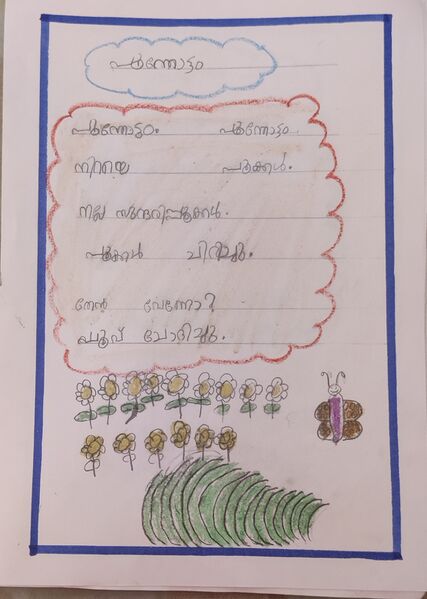 പൂന്തോട്ടം
പൂന്തോട്ടം പൂന്തോട്ടം
നിറയെ പൂക്കൾ.
നല്ല സുന്ദരിപ്പൂക്കൾ.
പൂക്കൾ ചിരിച്ചു.
തേൻ വേണോ?
പൂവ് ചോദിച്ചു.